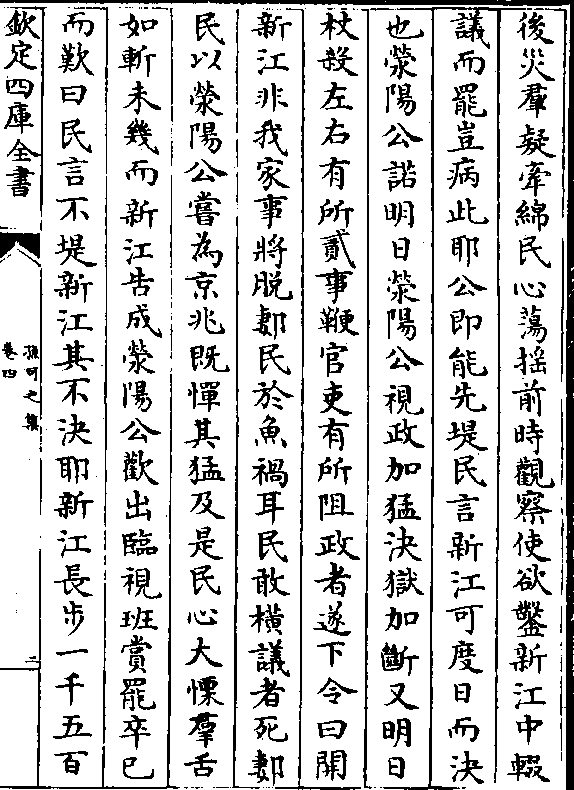 後災羣疑牽綿民心蕩揺前時觀察使欲鑿新江中輟
議而罷豈病此耶公即能先堤民言新江可度日而決
也滎陽公諾明日滎陽公視政加猛決獄加斷又明日
杖殺左右有所貳事鞭官吏有所阻政者遂下令曰開
新江非我家事將脱鄴民於魚禍耳民敢横議者死鄴
民以滎陽公嘗為京兆既憚其猛及是民心大慄羣舌
如斬未幾而新江告成滎陽公歡出臨視班賞罷卒已
而歎曰民言不堤新江其不決耶新江長步一千五百
欽定四庫全書
孫可之集
卷四
二